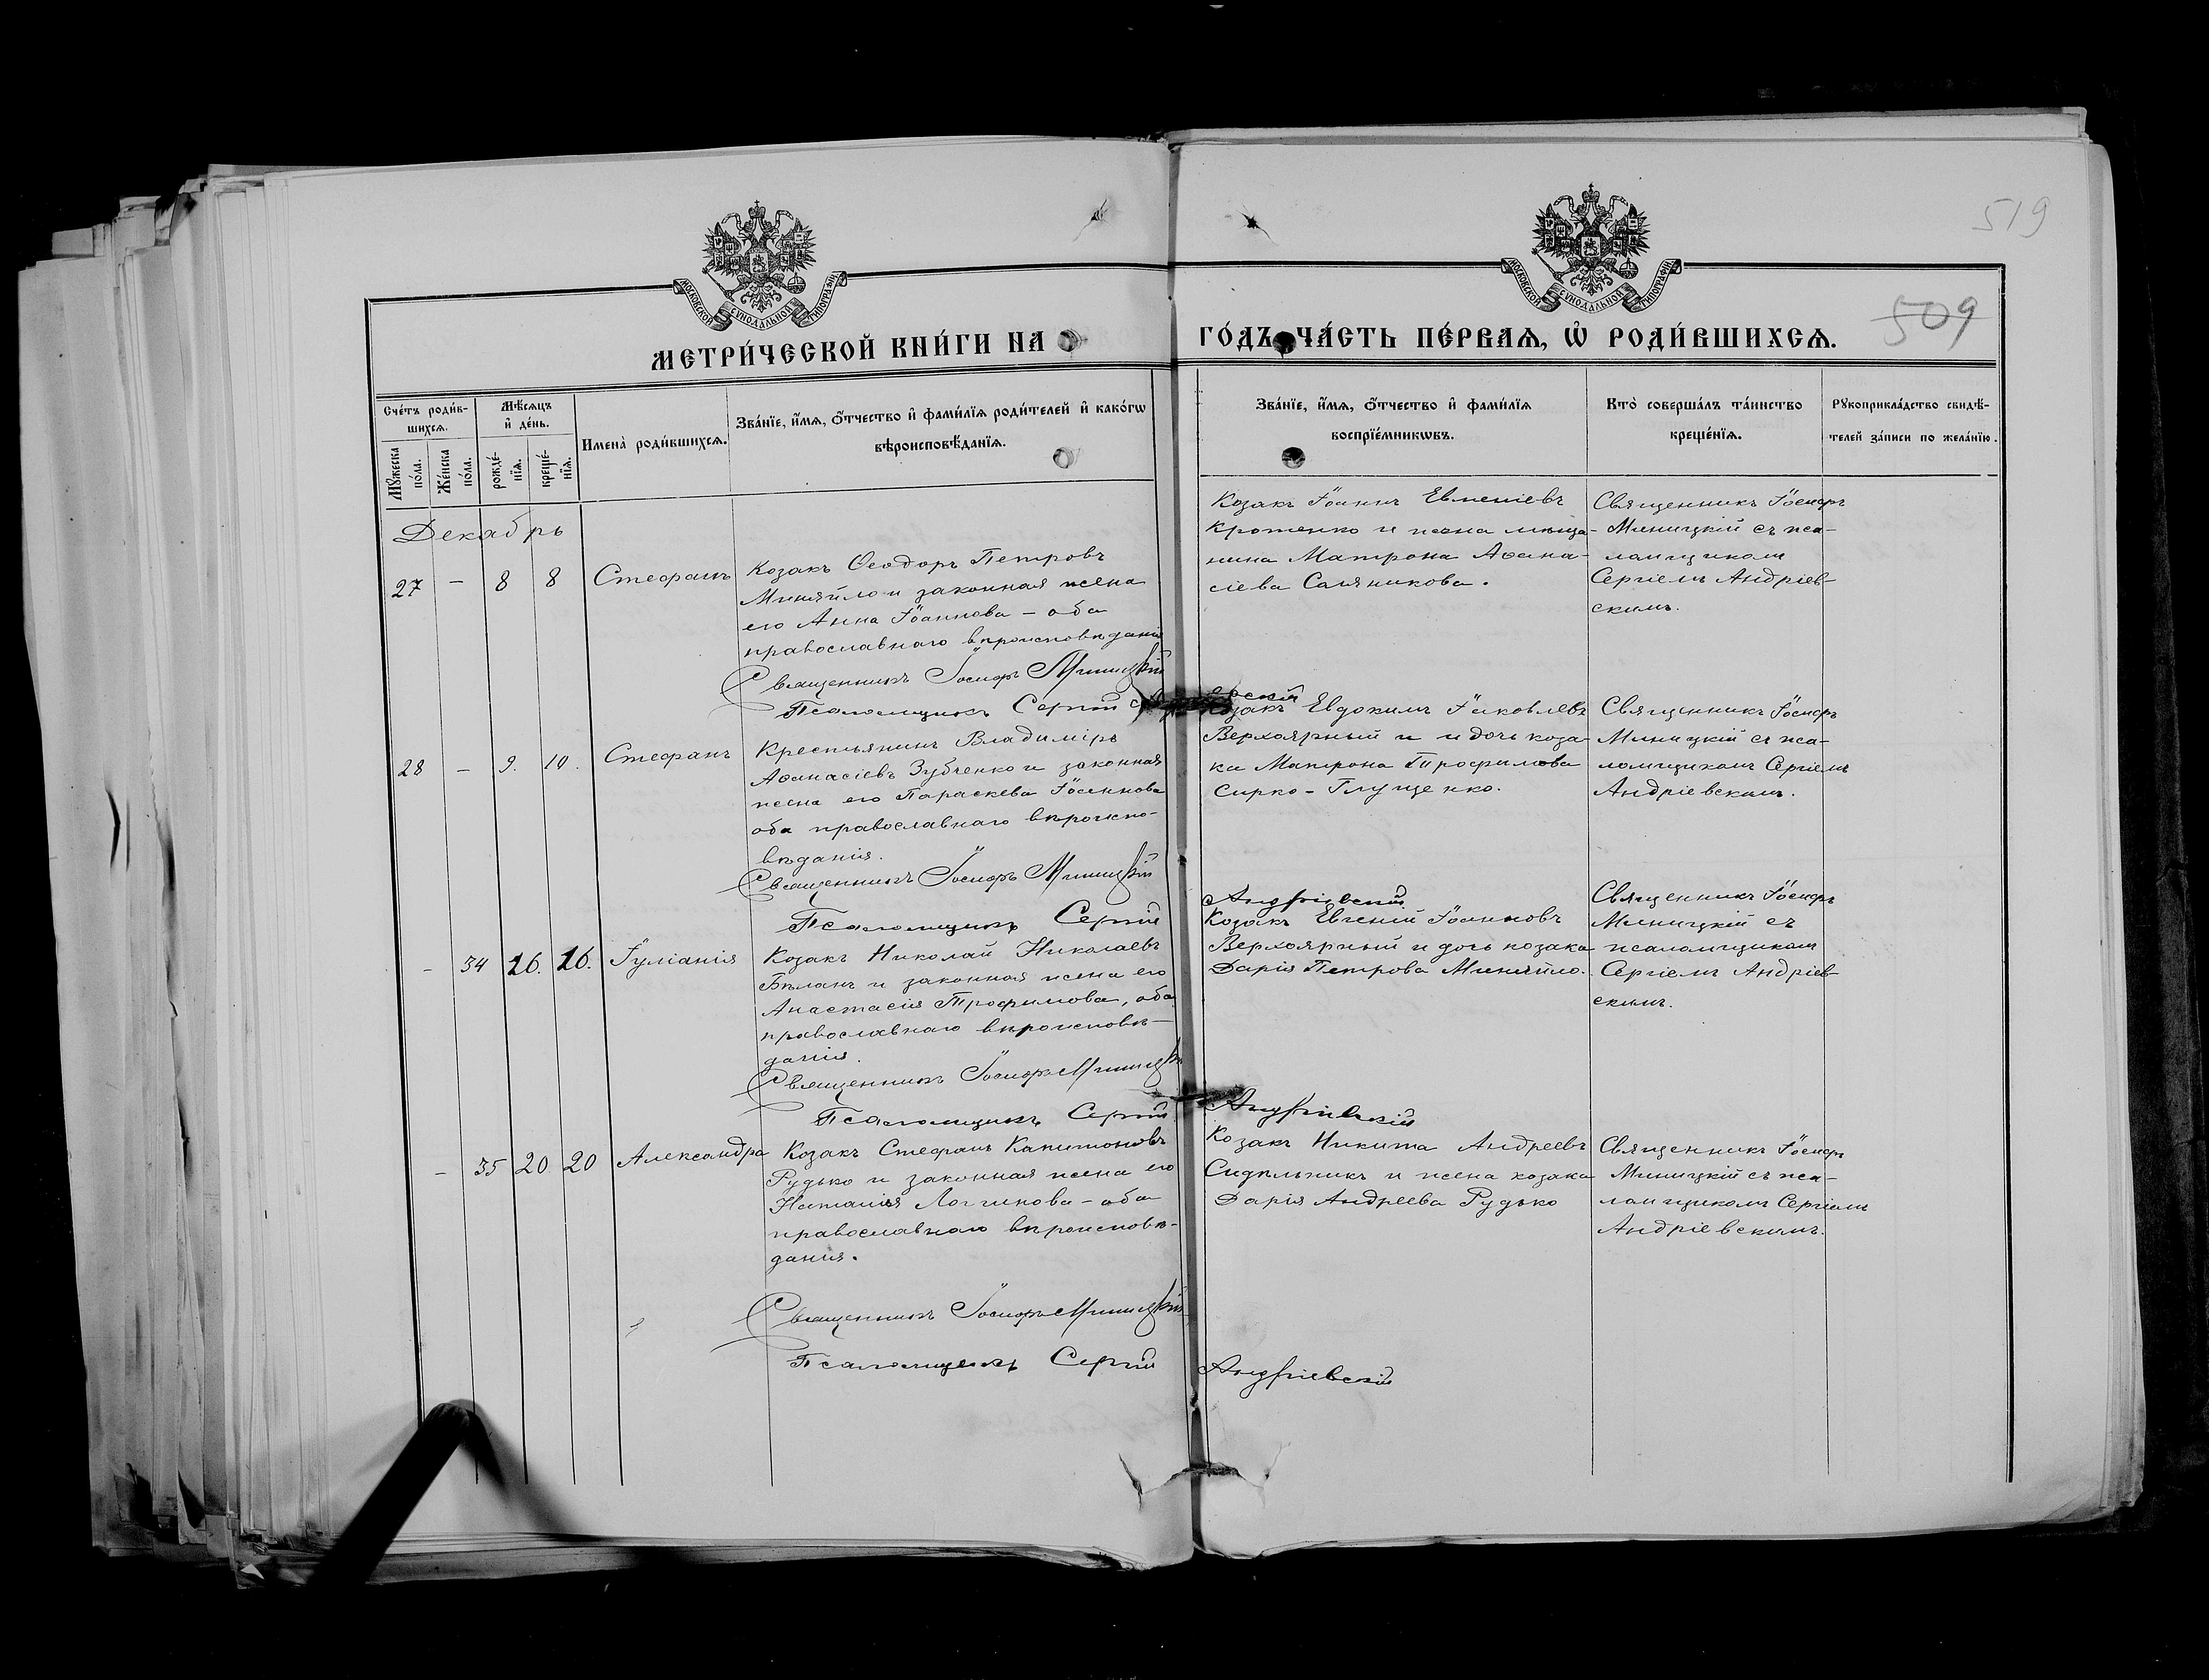 519
509
МОСКОВСКОЙ СѴНОДАЛЬНОЙ ТИПОГРАФІИ
МОСКОВСКОЙ СѴНОДАЛЬНОЙ ТИПОГРАФІИ
МЕТРИ́ЧЕСКОЙ КНИ́ГИ НА
ГО́ДЪ ЧА́СТЬ ПЕ́РВАѦ, Ѡ҆ РОДИ́ВШИХСѦ.
Сче́тъ роди́в-
шихсѧ.
Мꙋ́жеска по́ла.
Же́нска по́ла.
Мѣ́сѧцъ и҆ де́нь.
рожде́-нїѧ.
креще́-нїѧ.
Имена̀ роди́вшихсѧ.
Зва́нїе, и҆́мѧ, ѻ҆́тчество и҆ фами́лїѧ роди́телей и҆ како́гѡ
вѣроисповѣ́данїѧ.
Зва́нїе, и҆́мѧ, ѻ҆́тчество и҆ фами́лїѧ
воспрїе́мникѡвъ.
Кто̀ соверша́лъ та́инство
креще́нїѧ.
Рꙋкоприкла́дство свидѣ́-
телей за́писи по жела́нїю.
Декабрь
27 — 8 8 Стефанъ
Козакъ Ѳеодоръ Петровъ
Миняйло и законная жена
его Анна Іоаннова — оба
православнаго вѣроисповѣданія
Священникъ Іосифъ
Псаломщикъ Сергій
Козакъ Іоаннъ Евменіевъ
Кротенко и жена мѣща-
нина Матрона Аѳана-
сіева
Священникъ Іосифъ
съ пса-
ломщикомъ
Сергіемъ Андріев-
скимъ.
28 — 9. 10. Стефанъ
Крестьянинъ Владиміръ
Аѳанасіевъ Зубченко и законная
жена его Параскева Іоаннова
оба православнаго вѣроиспо-
вѣданія.
Священникъ Іосифъ
Псаломщикъ Сергій
Андріевскій
Козакъ Евдокимъ Іаковлевъ
Верхоярный и и дочь коза-
ка Матрона Трофимова
Сирко-Глущенко.
Священникъ Іосифъ
съ пса-
ломщикомъ Сергіемъ
Андріевскимъ.
— 34 16. 16. Іуліанія
Козакъ Николай Николаевъ
Бѣланъ и законная жена его
Анастасія Трофимова, оба
православнаго вѣроисповѣ-
данія.
Священникъ Іосифъ
Псаломщикъ Сергій
Андріевскій
Козакъ Евгеній Іоанновъ
Верхоярный и дочь козака
Дарія Петрова Миняйло.
Священникъ Іосифъ
съ
псаломщикомъ
Сергіемъ Андріев-
скимъ.
— 35 20 20 Александра
Козакъ Стефанъ Капитоновъ
Рудько и законная жена его
Наталія Логинова — оба
православнаго вѣроисповѣ-
данія.
Священникъ Іосифъ
Псаломщикъ Сергій
Андріевскій
Козакъ Никита Андреевъ
Сидѣльникъ и жена козака
Дарія Андреева Рудько
Священникъ Іосифъ
съ пса-
ломщикомъ Сергіемъ
Андріевскимъ.